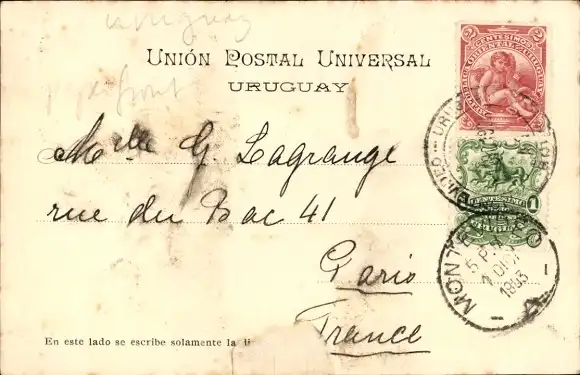 uruguay
UNIÓN POSTAL UNIVERSAL
URUGUAY
Mlle G. Lagrange
rue du Bac 41
Paris
France
En este lado se escribe solamente la di
2 CENTESIMOS 2
REPUBLICA ORIENTAL DEL URUGUAY
CENTESIMO 1
MONTEVIDEO
5 P
1903